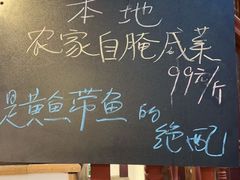 本地
农家自腌咸菜
99元/斤
是黄鱼带鱼的
绝配